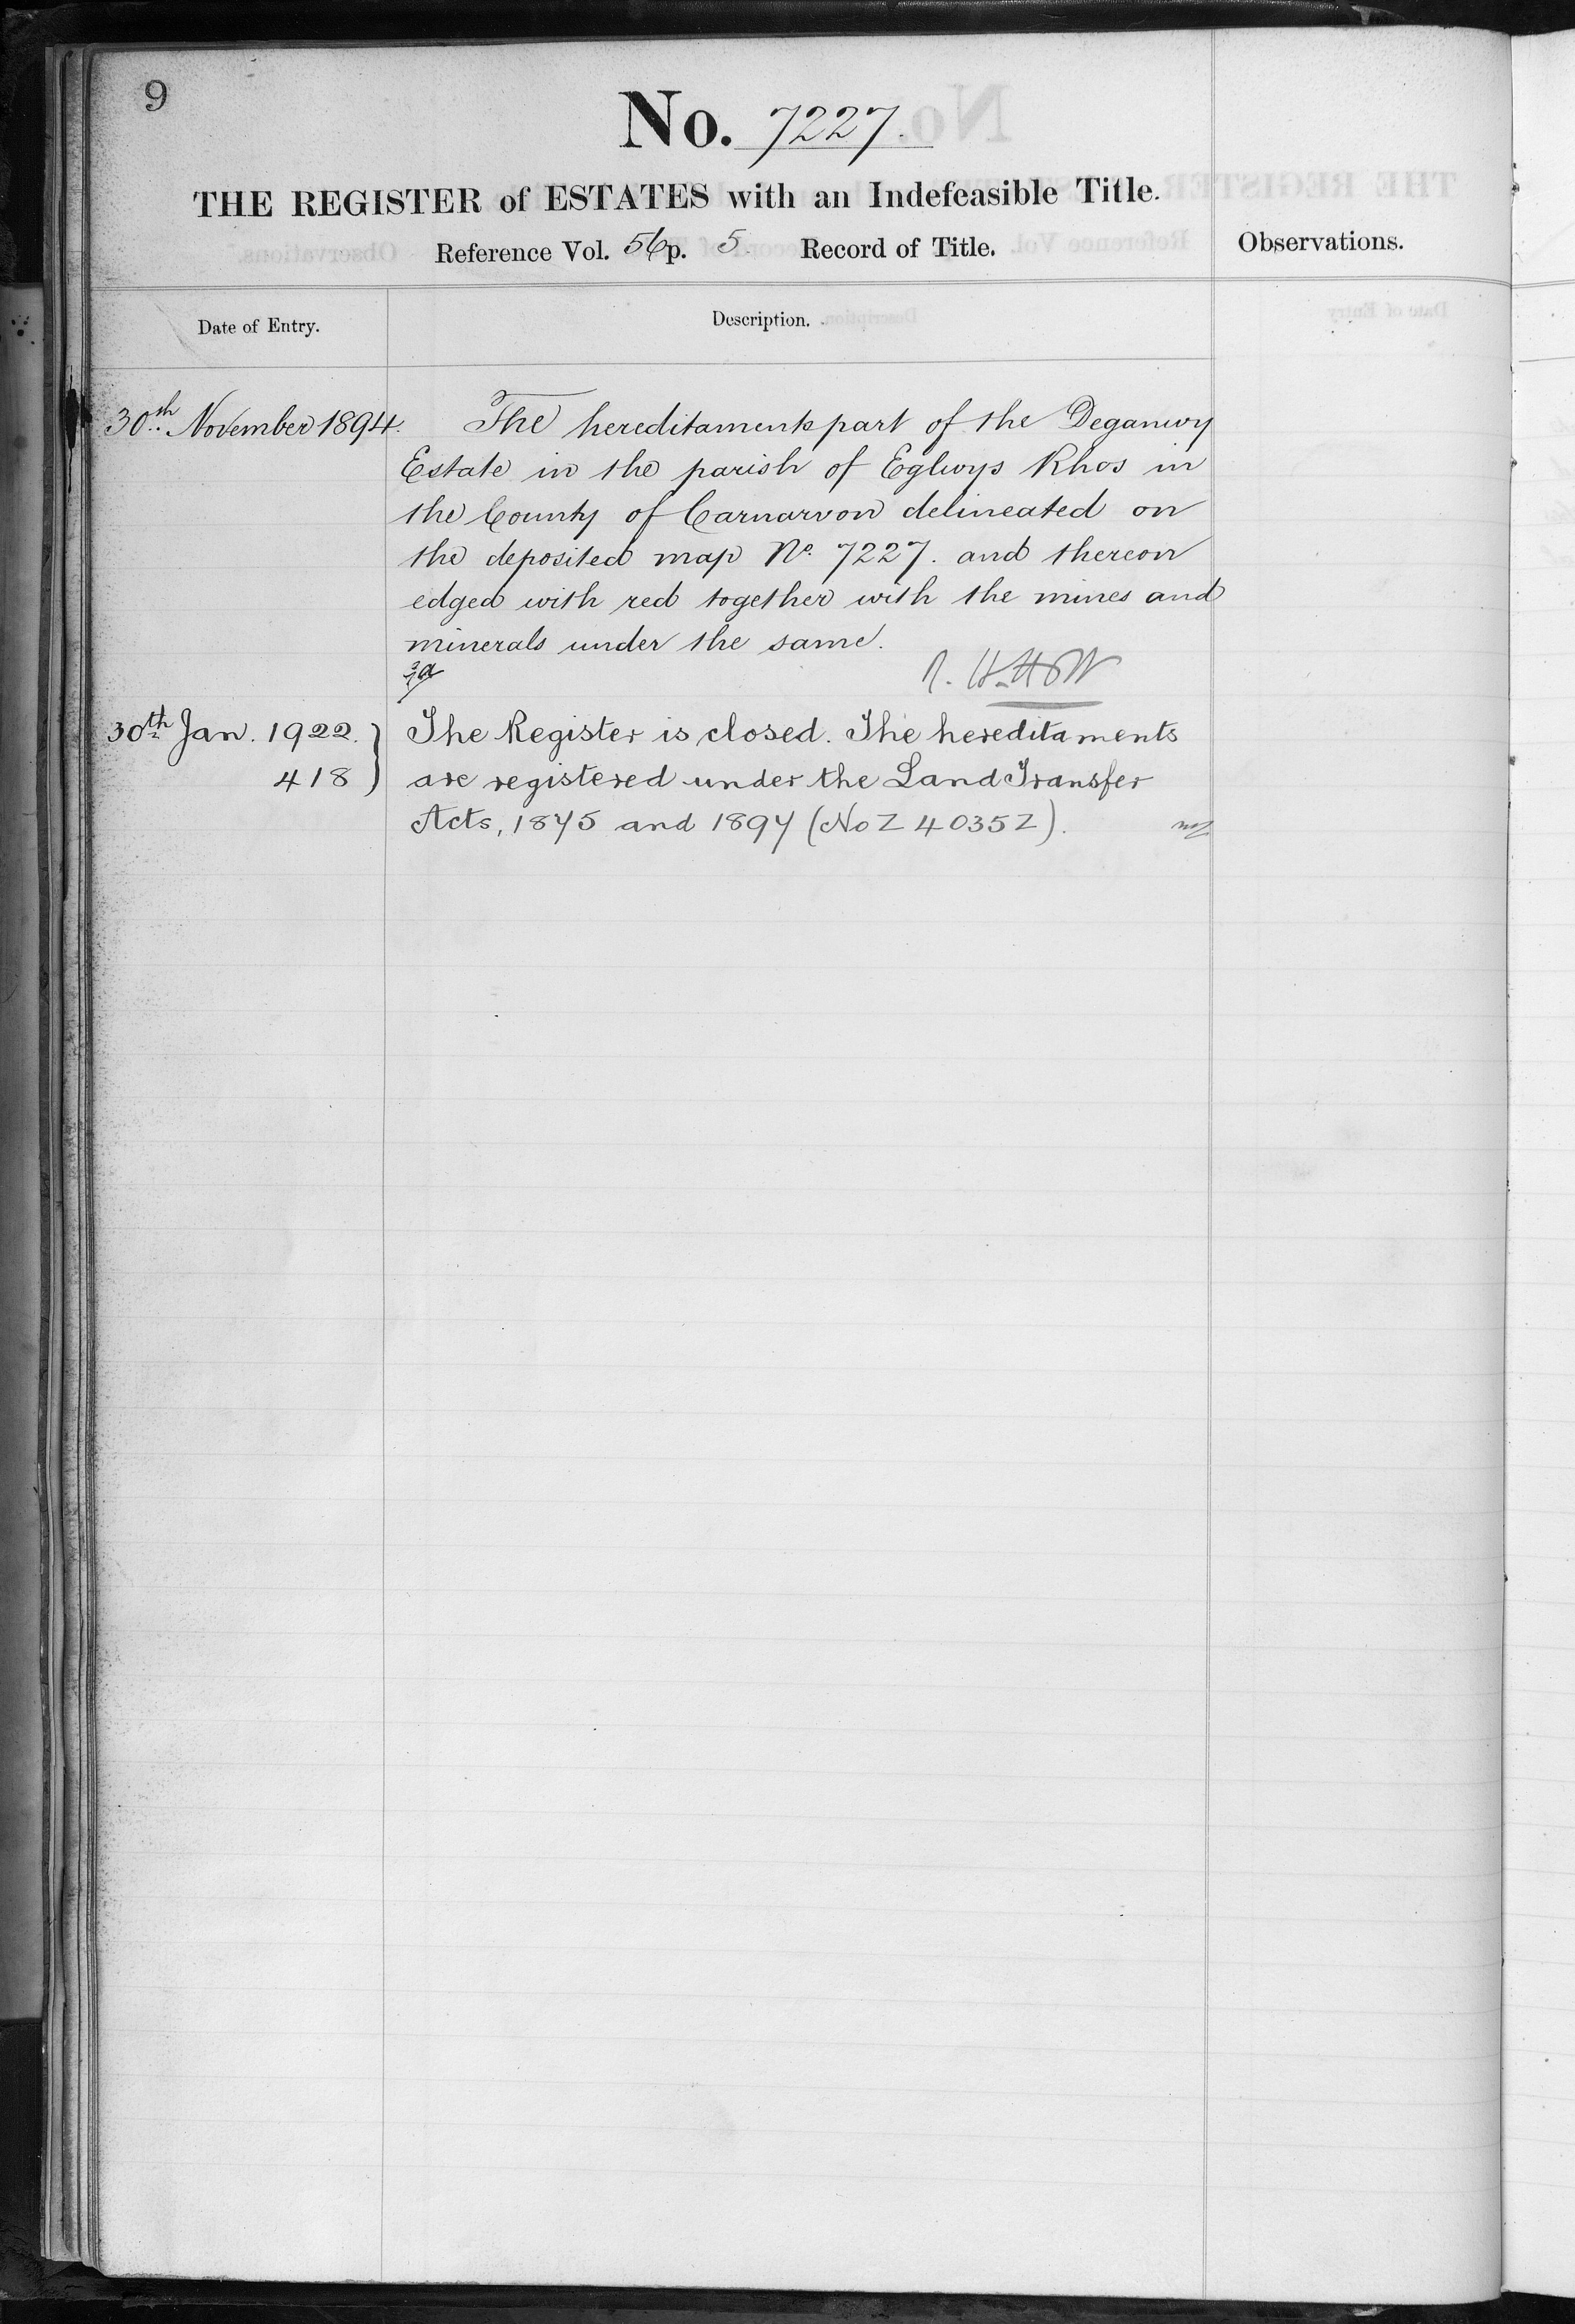 9
No. 7227.
THE REGISTER of ESTATES with an Indefeasible Title.
Reference Vol. 56 p. 5. Record of Title.
Observations.
Date of Entry.
Description.
30th November 1894.
The hereditaments part of the Deganwy
Estate in the parish of Eglwys Rhos in
the County of Carnarvon delineated on
the deposited map No. 7227. and thereon
edged with red together with the mines and
minerals under the same.
30th Jan. 1922.
418
The Register is closed. The hereditaments
are registered under the Land Transfer
Acts, 1875 and 1897 (No Z 40352).